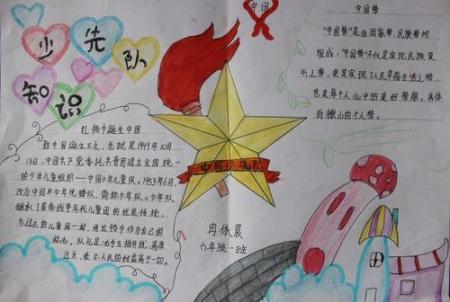 少先队
知识
红领巾诞生中国
新中国诞生不久,也就是1949年10月
13日,中国共产党委托共青团建立全国统一
的少年儿童组织——中国少年儿童队。1953年6月,
改为中国少年先锋队,简称少年队。少年队
继承了革命战争年代儿童团的优良传统,
与过去的儿童团一样,用五
中国
中国梦
"中国梦"是由国家梦、民族梦所
组成,"中国梦"不仅是实现民族复
兴之梦,更是实现了人民幸福生活之梦,
也是每个人心中的美好梦想,具体
的
山的个人梦。
中国少先队
冉
晨
六年级一班